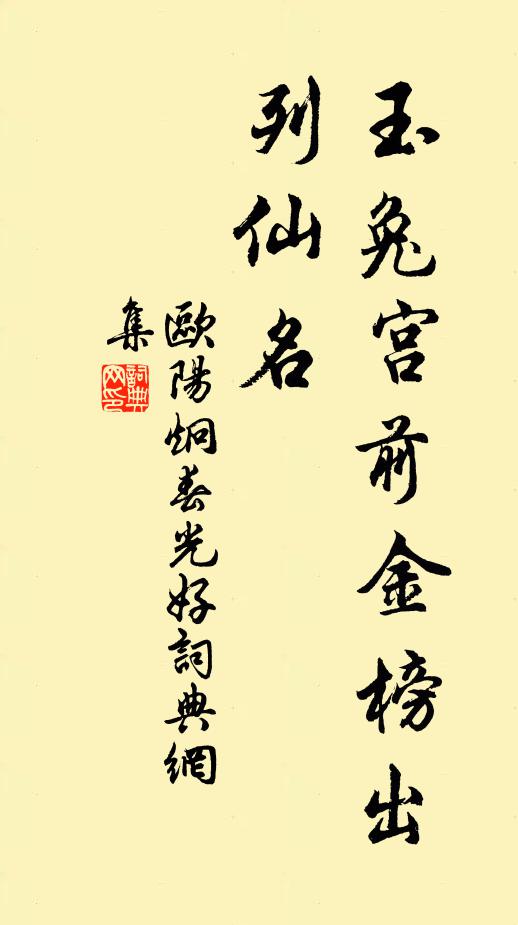 玉兔宫前金榜出
列仙名
歐陽炯春光好詞典網
集
詞典
网印